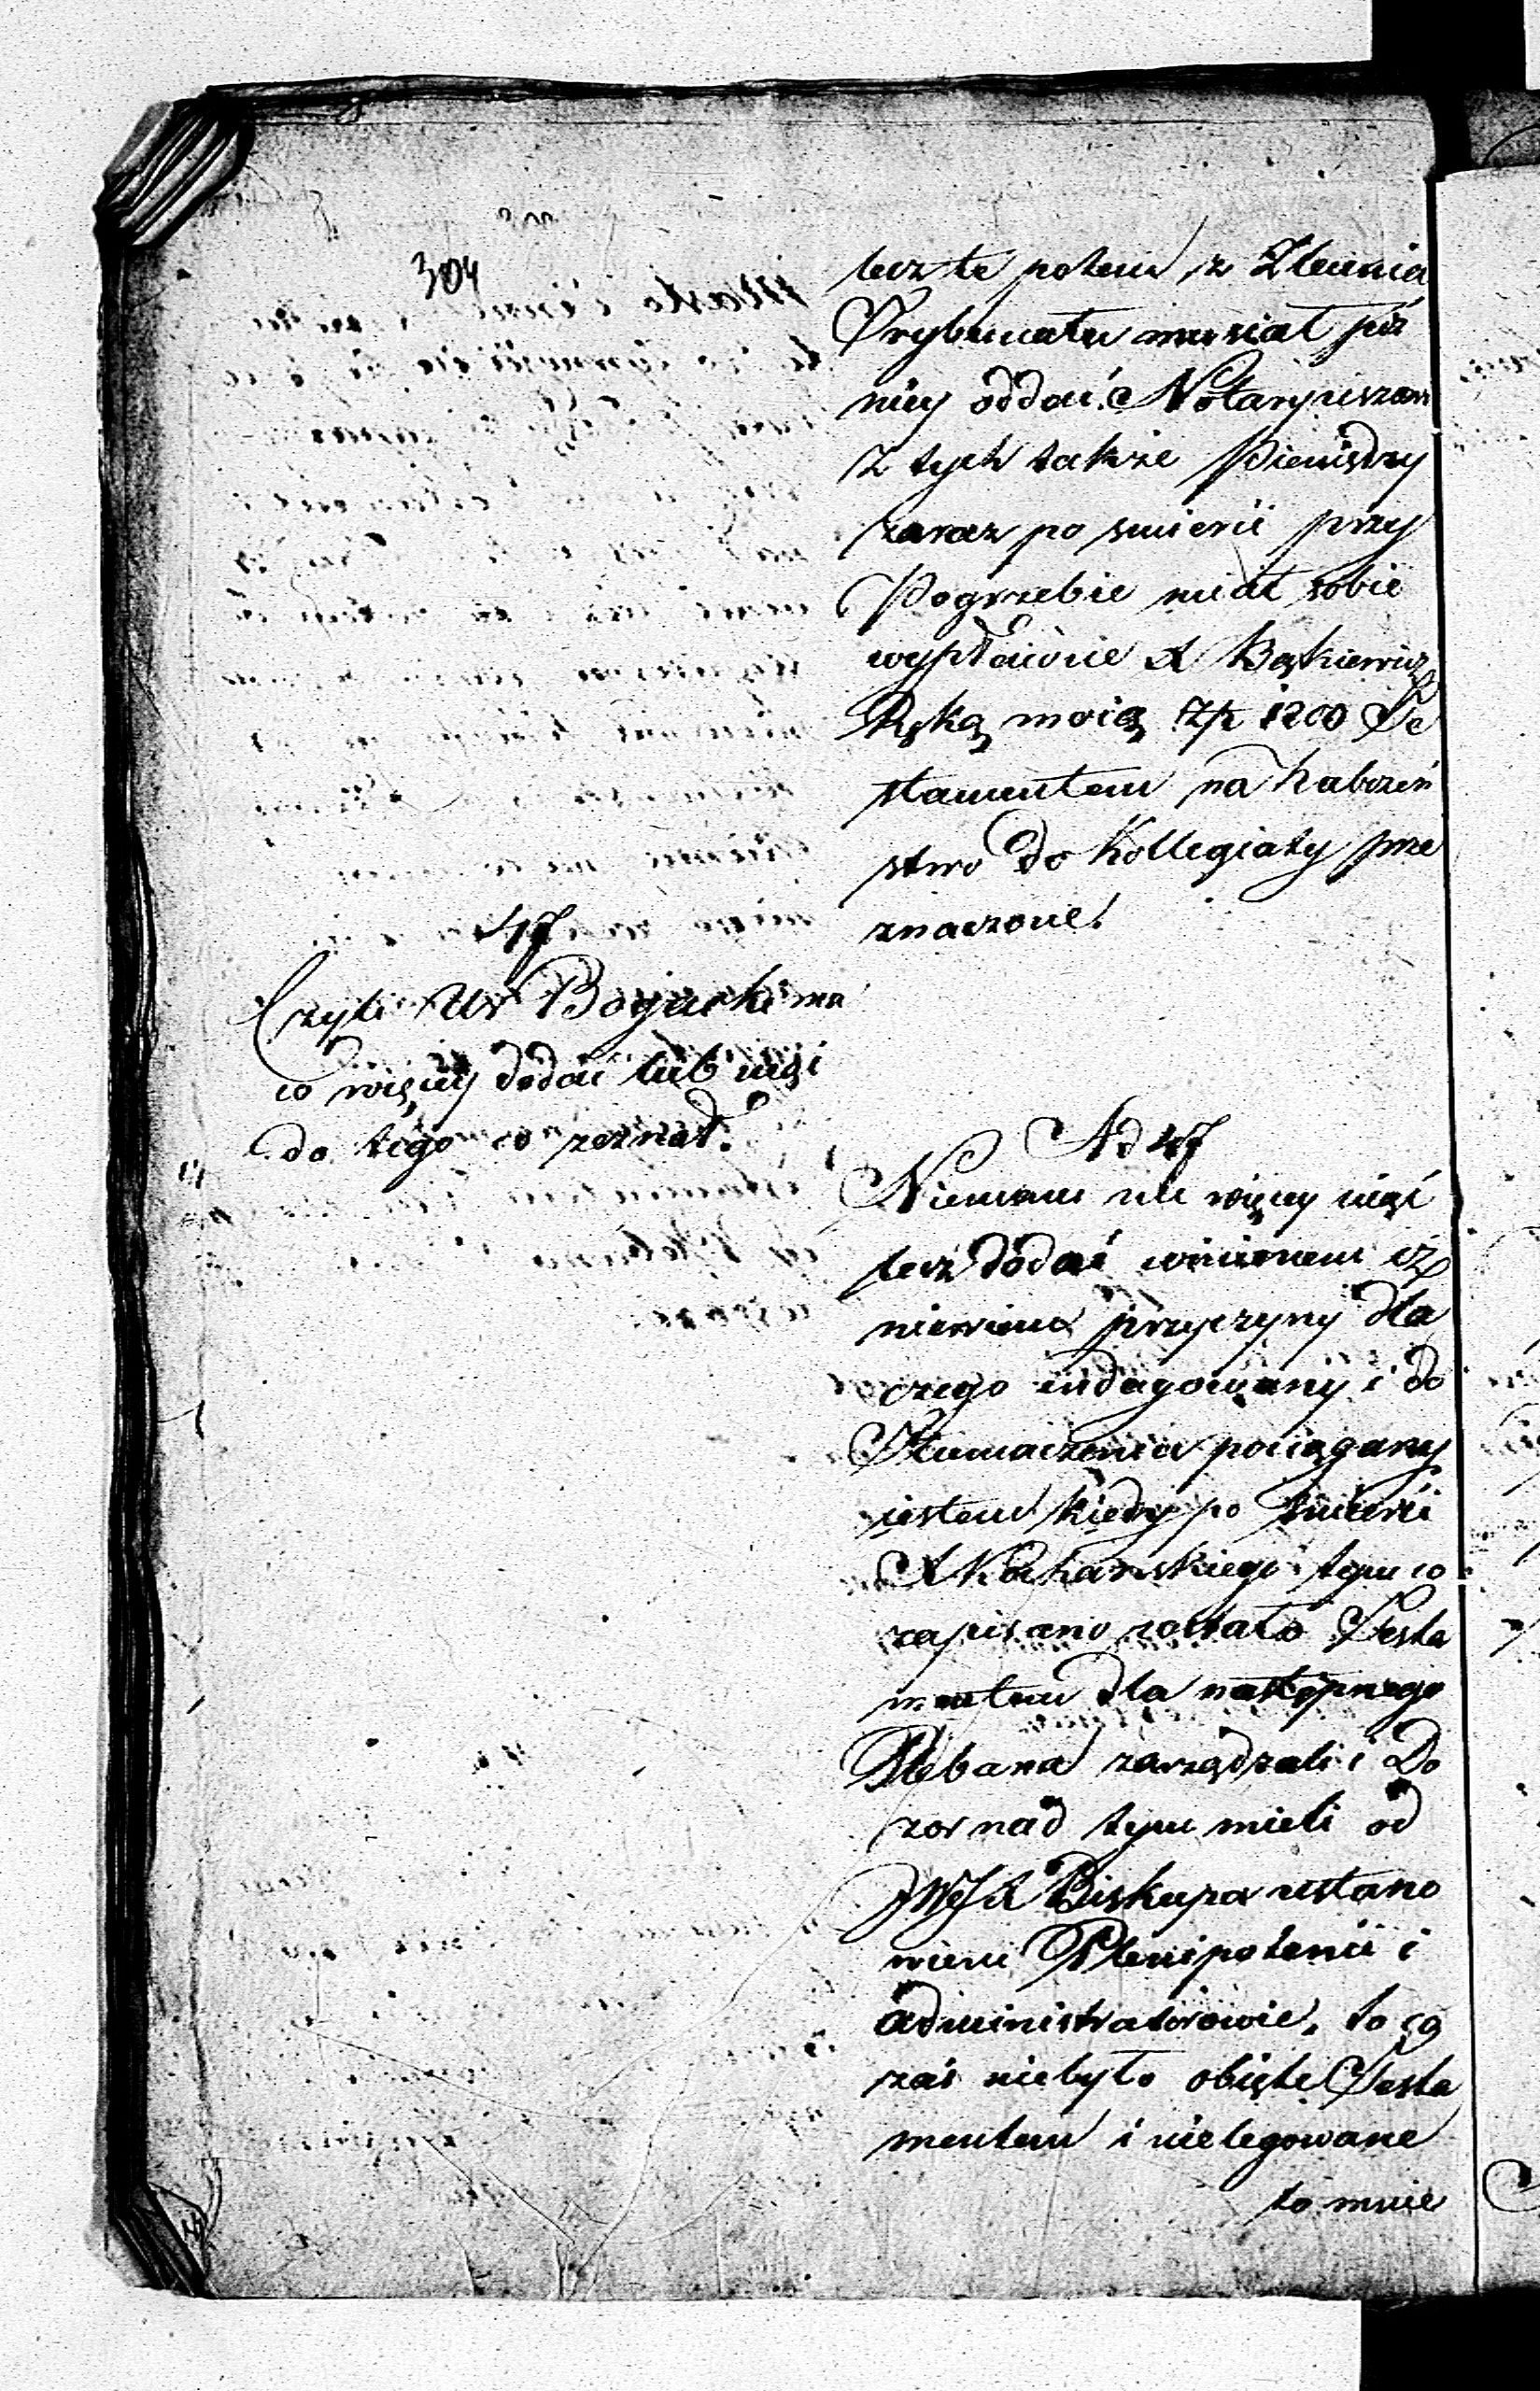 304
lecz te potem z Zlecenia
Trybunatu musiał púz
niey oddać. Notaryuszow
z tych także Pieniędzy
zaraz po smierci przy
Pogrzebie miał sobie
wypłacone X Bąkiewicz
Ręką moią Złp 1200 Te
stamentem na Nabożeń
stwo do Kollegiaty prze
znaczone.
47
Czyli Ur Bogucki ma
co więcey dodać lub ująć
do tego co zeznał.
Ad 47
Niemam nic więcey ująć
lecz dodać winienem iż
niewiem przyczyny dla
czego indagowany i do
Tłumaczenia pociągany
iestem kiedy po śmierci
X Kochanskiego tym co
zapisano zostało Testa
mentem dla następnego
Plebana zarządzali i Do
zor nad tym mieli od
JWJX Biskupa ustano
wieni Plenipotenci i
administratorowie, to co
zaś niebyło obięte Testa
mentem i nielegowane
to mnie